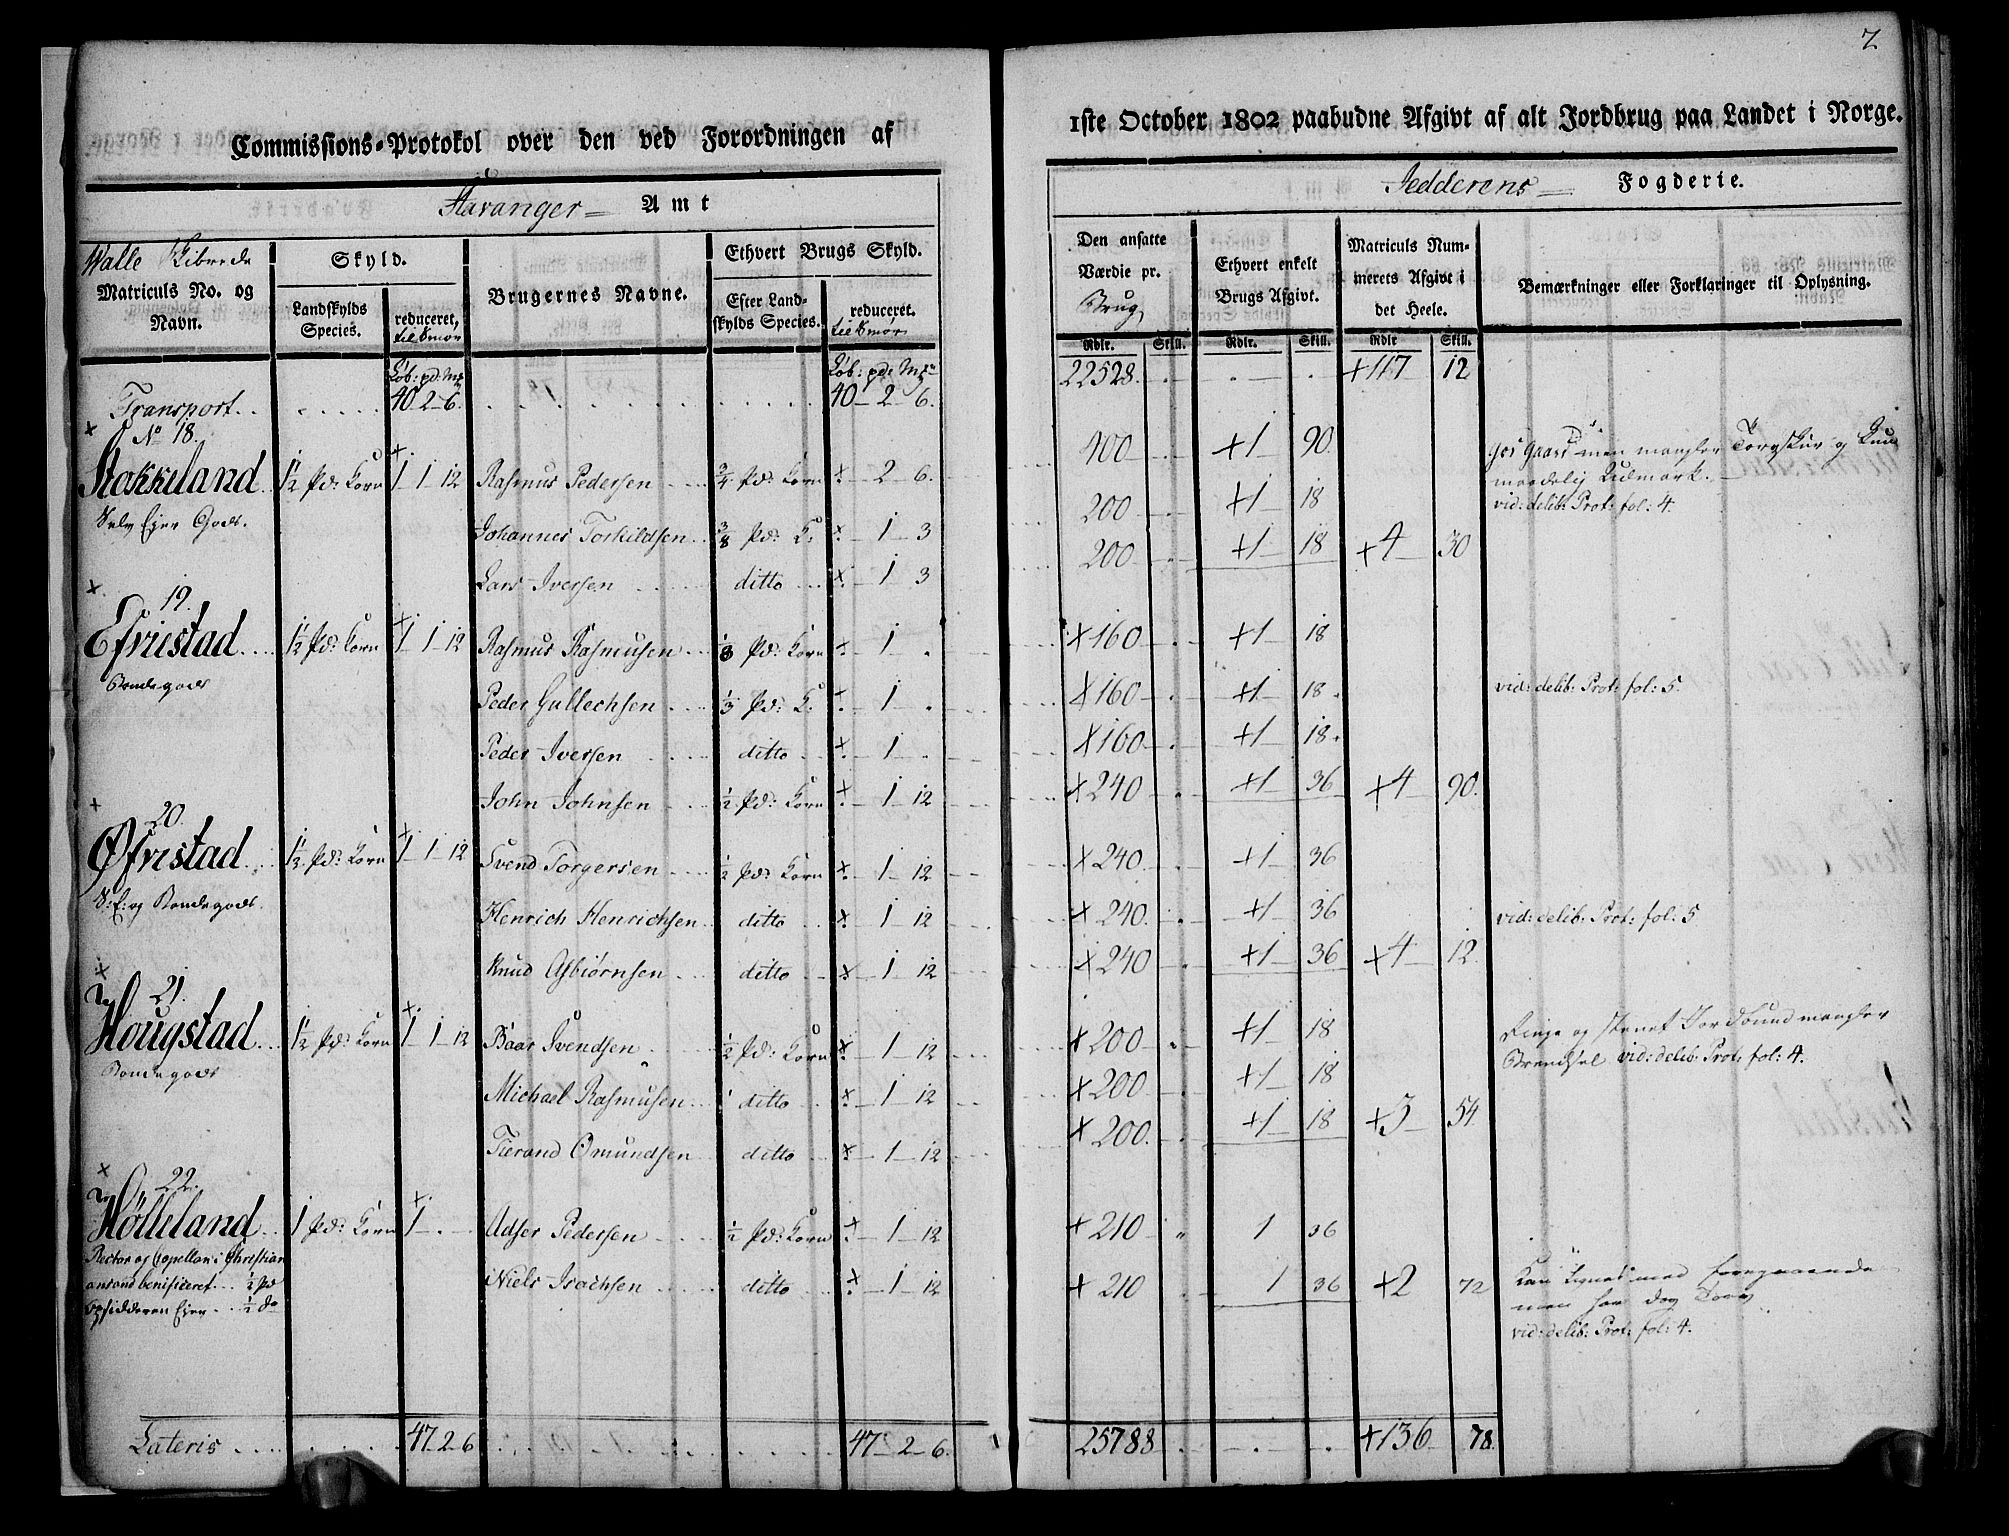 7
Commissions-Protokol over den ved Forordningen af 1ste October 1802 paabudne Afgivt af alt Jordbrug paa Landet i Norge.
Stavanger Amt
Jedderens Fogderie.
Walle
Matriculs No. og Navn.
Skyld.
Landskylds Species.
reduceret, til Smør
Brugernes Navne.
Ethvert Brugs Skyld.
Efter Landskylds Species.
reduceret. til Smør
Den ansatte Værdie pr. Brug
Ethvert enkelt Brugs Afgivt.
Matriculs Nummerets Afgivt i det Heele.
Bemærkninger eller Forklaringer til Oplysning.
Rdlr. Skill. Rdlr. Skill. Rdlr Skill.
Løb: pd: Mk Løb: pd: Mk
Transport 40 2 6 40 2 6 22528 +117 12
No 18.
Stokkeland 1½ Pd: Korn 1 1 12 Rasmus Pedersen ¾ Pd: Korn 2 6 400 +1 90
Selv Ejer Gods.
Johannes Torkildsen ⅜ Pd: K: 1 3 200 +1 18
vid: delib: Prot: fol: 4.
Lars Iversen ditto 1 3 200 +1 18 +4 30
19.
Efvrestad 1½ Pd: Korn 1 1 12 Rasmus Rasmusen ⅓ Pd: Korn 1 +160 +1 18
Bondegods
Peder Gullechsen ⅓ Pd: K: 1 +160 +1 18 vid: delib: Prot: fol: 5.
Peder Iversen ditto 1 +160 +1 18
John Johnsen ½ Pd: Korn 1 12 +240 +1 36 +4 90
20.
Øfvrestad 1½ Pd: Korn 1 1 12 Svend Torgersen ½ Pd: Korn 1 12 +240 +1 36
S: E: og Bondegods
Henrich Henrichsen ditto 1 12 +240 +1 36 vid: delib: Prot: fol: 5
Knud Asbiørnsen ditto 1 12 +240 +1 36 +4 12
21.
Hougstad 1½ Pd: Korn 1 1 12 Baar Svendsen ½ Pd: Korn 1 12 +200 +1 18
Bondegods
vid: delib: Prot: fol: 4.
Michael Rasmusen ditto 1 12 +200 +1 18
Tierand Omundsen ditto 1 12 +200 +1 18 +3 54
22.
Hølleland 1 Pd: Korn 1 Adser Pedersen ½ Pd: Korn 1 12 +210 1 36
Rector og Capellan i Christian
ansand benificeret ½ Pd
Opsidderen Ejer ½ do
Niels Isachsen ditto 1 12 +210 1 36 +2 72
men har dog Torv
vid: delib: Prot: fol: 4.
Lateris 47 2 6 47 2 6 25788 +136 78